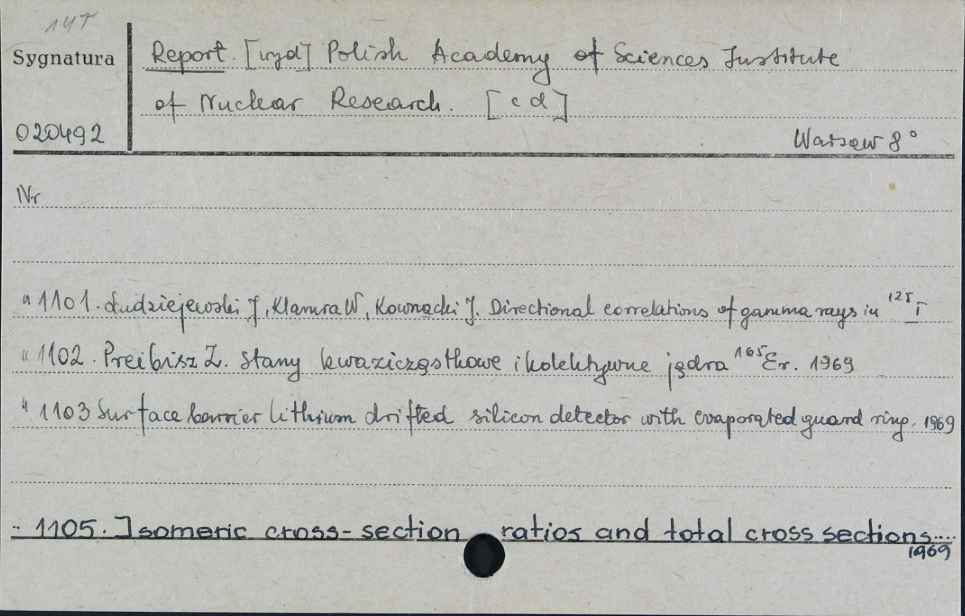 147
Sygnatura
Report. [wyd] Polish Academy of Sciences Institute
of Nuclear Research. [cd]
020492
Warsaw 8°
Nr
" 1101. Ludziejewski J, Klamra W, Kownacki J. Directional correlations of gamma rays in ¹²⁵I
" 1102. Preibisz Z. Stany kwazicząstkowe i kolektywne jądra ¹⁶⁵Er. 1969
" 1103 Surface barrier lithium drifted silicon detector with evaporated guard ring. 1969
" 1105. Isomeric cross-section ratios and total cross sections....
1969